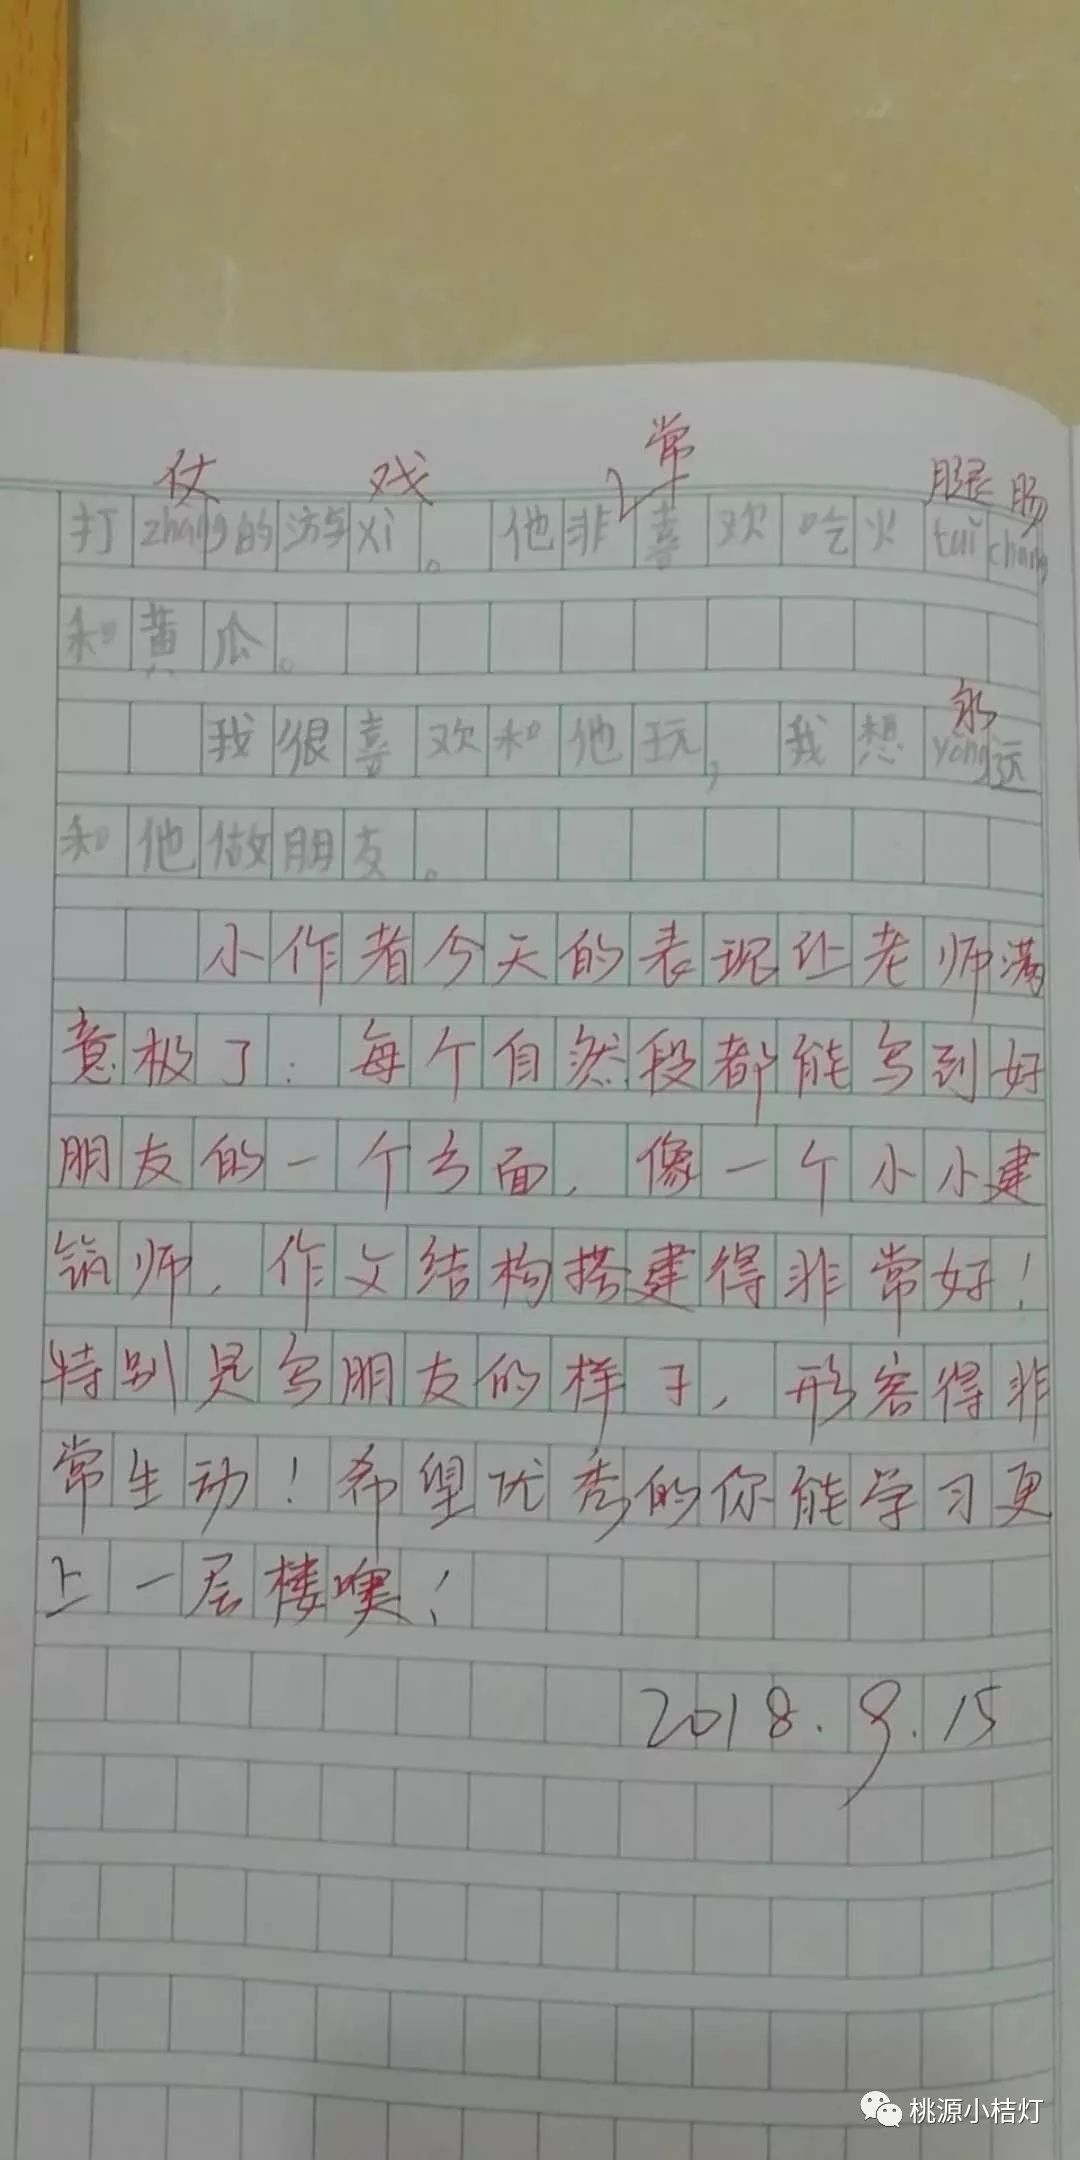 仗 戏 常 腿 肠
打zhàng的游xì。他非喜欢吃火tuǐcháng
和黄瓜。
永
我很喜欢和他玩，我想yǒng远
和他做朋友。
小作者今天的表现让老师满
意极了：每个自然段都能写到好
朋友的一个方面，像一个小小建
筑师，作文结构搭建得非常好！
特别是写朋友的样子，形容得非
常生动！希望优秀的你能学习更
上一层楼噢！
2018.9.15
桃源小桔灯